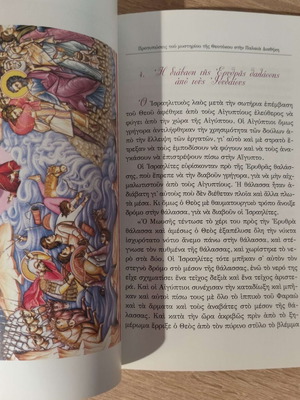 Προτυπώσεις τοῦ μυστηρίου τῆς Θεοτόκου στὴν Παλαιὰ Διαθήκη
1. Ἡ διάβαση τῆς Ἐρυθρᾶς θαλάσσης
ἀπὸ τοὺς Ἰουδαίους
Ὁ Ἰσραηλιτικὸς λαὸς μετὰ τὴν σωτήρια ἐπέμβαση
τοῦ Θεοῦ ἀφέθηκε ἀπὸ τοὺς Αἰγυπτίους ἐλεύθερος νὰ
φύγει ἀπὸ τὴν χώρα τῆς Αἰγύπτου. Οἱ Αἰγύπτιοι ὅμως
γρήγορα ἀντιλήφθηκαν τὴν χρησιμότητα τῶν δούλων
ἀπὸ τὴν ἔλλειψη τῶν ἐργατῶν, γι᾿ αὐτὸ καὶ μὲ στρατὸ ἔ-
τρεξαν νὰ τοὺς ἐμποδίσουν νὰ φύγουν καὶ νὰ τοὺς ἀνα-
γκάσουν νὰ ἐπιστρέψουν πίσω στὴν Αἴγυπτο.
Οἱ Ἰσραηλίτες εὑρίσκονταν πρὸς τῆς Ἐρυθρᾶς θάλασ-
σας, ποὺ ἔπρεπε νὰ τὴν διαβοῦν γρήγορα, γιὰ νὰ μὴν αἰχ-
μαλωτιστοῦν ἀπὸ τοὺς Αἰγυπτίους. Ἡ θάλασσα ἦταν ἀ-
διάβατη γι᾿ αὐτοὺς ποὺ δὲν διέθεταν πλοῖα καὶ ἄλλα πλω-
τὰ μέσα. Κι ὅμως ὁ Θεὸς μὲ θαυματουργικὸ τρόπο ἄνοιξε
δρόμο στὴν θάλασσα, γιὰ νὰ διαβοῦν οἱ Ἰσραηλίτες.
«Ὁ Μωυσῆς τέντωσε τὸ χέρι του πρὸς τὴν Ἐρυθρὰ
θάλασσα καὶ ἀμέσως ὁ Θεὸς ἐξαπέλυσε ὅλη τὴν νύκτα
ἰσχυρότατο νότιο ἄνεμο πάνω στὴν θάλασσα, καὶ στέ-
γνωσε τὸν πυθμένα τῆς θάλασσας, καὶ χωρίστηκε τὸ νε-
ρὸ στὰ δύο. Οἱ Ἰσραηλίτες τότε μπῆκαν σ᾿ αὐτὸν τὸν
στεγνὸ δρόμο στὸ μέσον τῆς θάλασσας, ἐνῶ τὸ νερὸ τῆς
εἶχε σχηματίσει ἕνα τεῖχος δεξιὰ καὶ ἕνα τεῖχος ἀριστε-
ρά. Καὶ οἱ Αἰγύπτιοι συνέχισαν τὴν καταδίωξη καὶ μπῆ-
καν καὶ αὐτοὶ πίσω τους μὲ ὅλο τὸ ἱππικὸ τοῦ Φαραὼ
καὶ τὰ ἅρματα καὶ τοὺς ἀναβάτες στὸ μέσον τῆς θά-
λασσας. Καὶ κατὰ τὴν ὥρα ἀκριβῶς πρὶν ἀπὸ τὸ ξη-
μέρωμα ἔρριξε ὁ Θεὸς ἀπὸ τὸν πύρινο στύλο τὸ βλέμμα